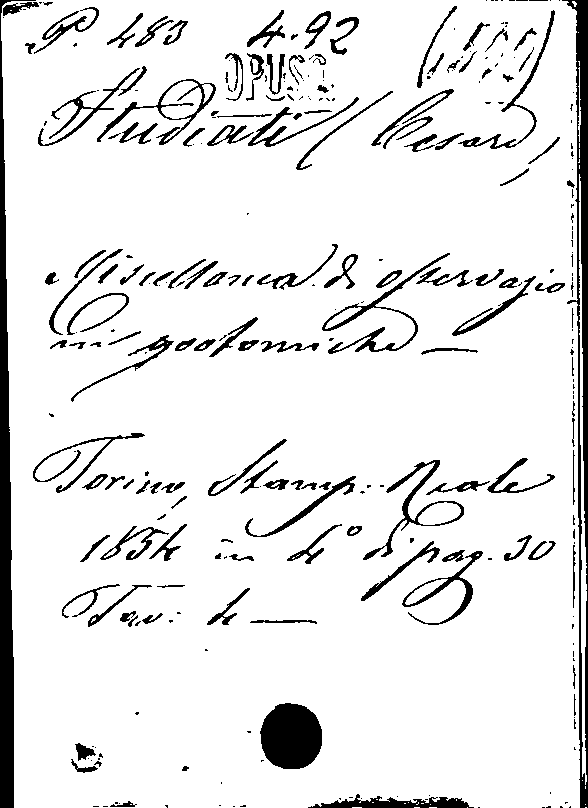 P. 483 4.92
OPUSC.
Studiati (Cesare)
Miscellanea di osservazio
ni zootomiche —
Torino, Stamp: Reale
1854 in 4° di pag. 30
Tav: 4 —